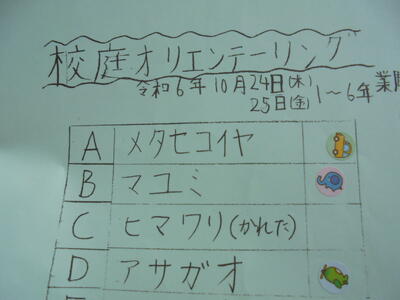 校庭オリエンテーリング
令和6年10月24日(木)
25日(金)
1～6年
業間
A メタセコイヤ
B マユミ
C ヒマワリ(かれた)
D アサガオ